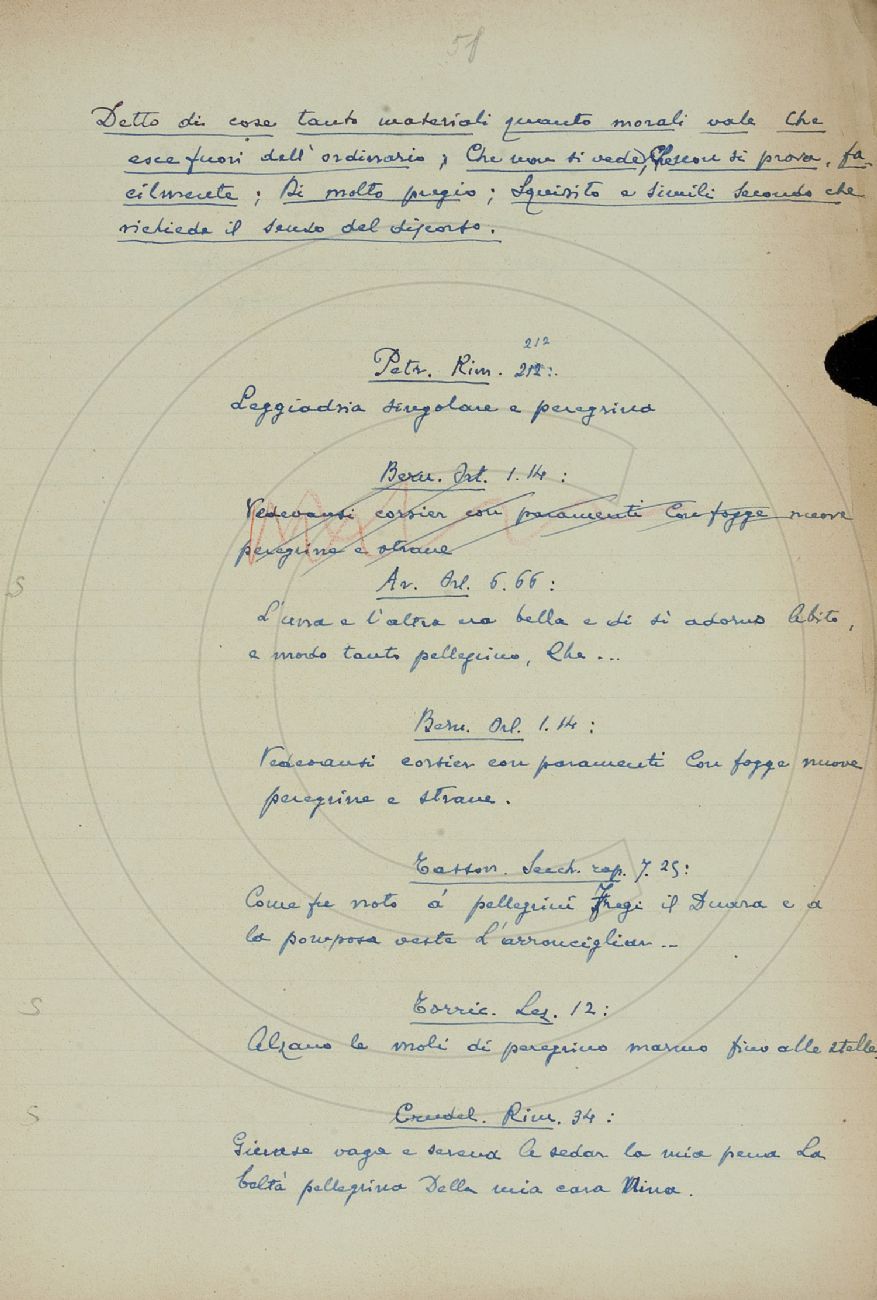 58
Detto di cose tanto materiali quanto morali vale Che
esce fuori dell'ordinario; Che non si vede, Che non si prova, fa-
cilmente; Di molto pregio; Squisito e simili secondo che
richiede il senso del discorso.
212
Petr. Rim. 212:
Leggiadria singolare e peregrina
Bern. Orl. 1.14:
Vedevansi corsier con paramenti Con fogge nuove
peregrine e strane
Ar. Orl. 6.66:
S
L'una e l'altra era bella e di sì adorno Abito,
e modo tanto pellegrino, Che ...
Bern. Orl. 1.14:
Vedevansi corsier con paramenti Con fogge nuove
peregrine e strane.
Tasson. Secch. rap. 7.25:
Come fu noto a' pellegrini Fregi il Duara e a
la pomposa veste L'arroncigliar ...
S
Torric. Lez. 12:
Alzano le moli di peregrino marmo fino alle stelle.
S
Crudel. Rim. 34:
Giovase vaga e serena A sedar la mia pena La
beltà pellegrina Della mia cara Nina.